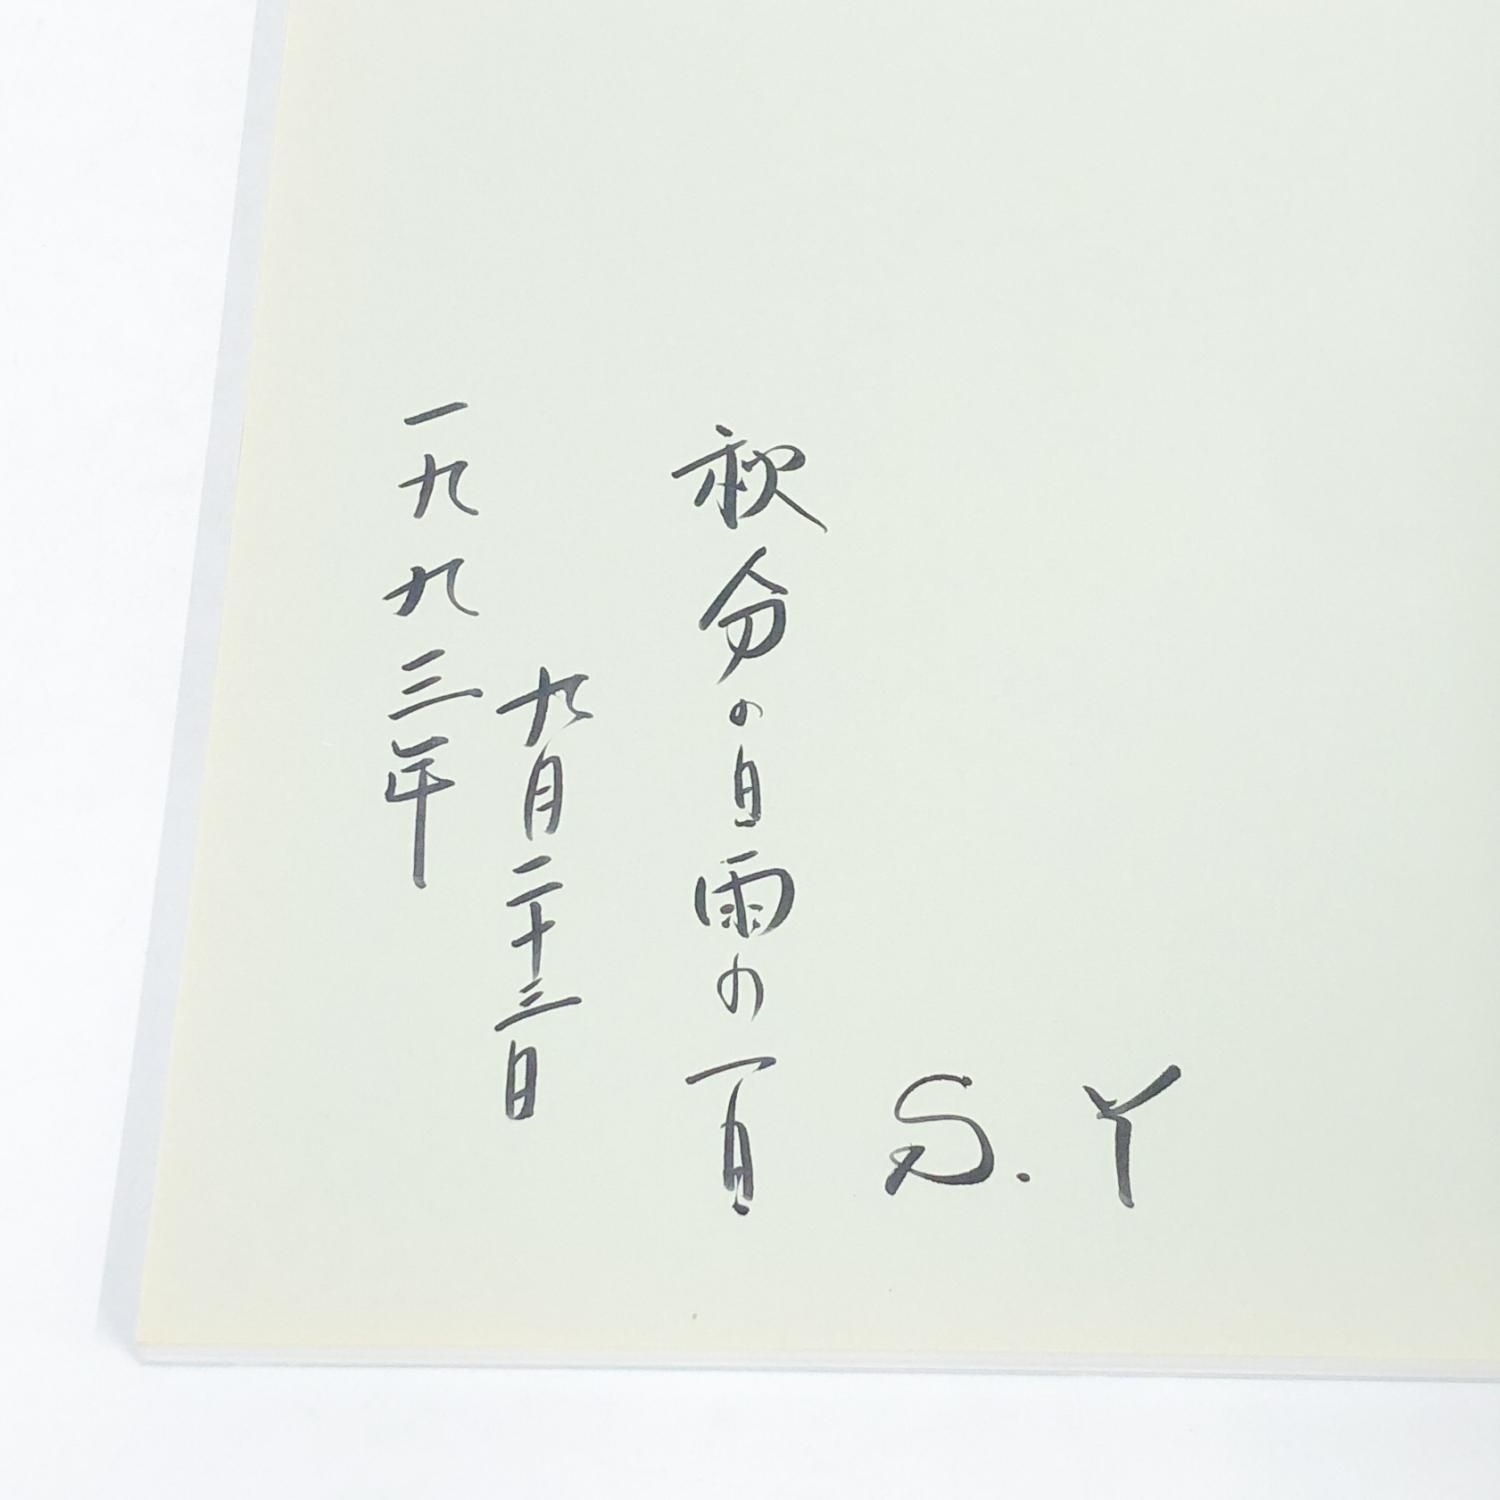 S.Y
秋分の日雨の一日
九月二十三日
一九九三年